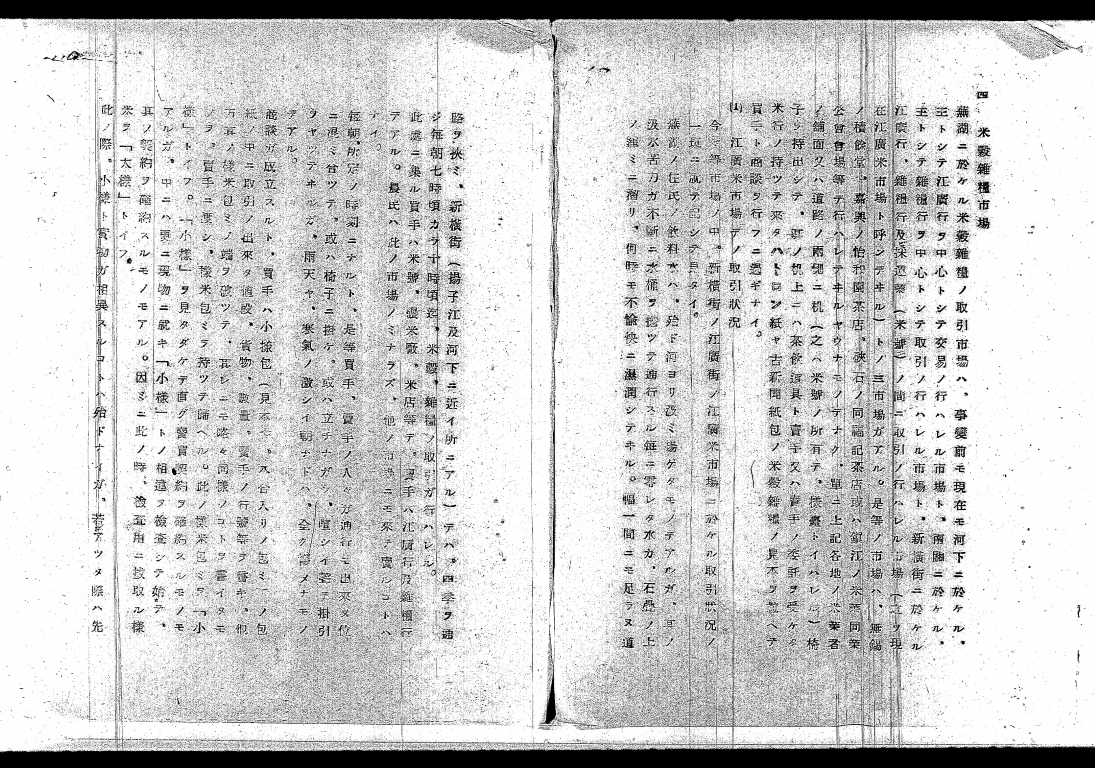 四　米穀雜糧市場
蕪湖ニ於ケル米穀雜糧ノ取引市場ハ、事變前モ現在モ河下ニ於ケル、
主トシテ江廣行ヲ中心トシテ交易ノ行ハレル市場ト、南關ニ於ケル、
主トシテ雜糧行ヲ中心トシテ取引ノ行ハレル市場ト、新橫街ニ於ケル
江廣行、雜糧行及採選業（米號）ノ間ニ取引ノ行ハレル市場（之ヲ現
在江廣米市場ト呼ンデヰル）トノ三市場ガアル。是等ノ市場ハ、無錫
ノ積餘堂、嘉興ノ怡和園茶店、硤石ノ同福記茶店或ハ鎭江ノ米業同業
公會會場等デ行ハレテヰルヤウナモノデナク、單ニ上記各地ノ米業者
ノ舖面又ハ道路ノ兩側ニ机（之ハ米號ノ所有デ、樣臺トイハレル）椅
子ヲ持出シテ、其ノ机上ニハ茶飮道具ト賣手又ハ賣手ノ委託ヲ受ケタ
米行ノ持ツテ來タハトロン紙ヤ古新聞紙包ノ米穀雜糧ノ見本ヲ並ベテ
買手ト商談ヲ行フニ過ギナイ。
(1)　江廣米市場デノ取引狀況
今是等市場ノ中、新橫街ノ江廣街ノ江廣米市場ニ於ケル取引狀況ノ
一斑ニ就テ記シテ見タイ。
蕪湖ノ住民ノ飮料水ハ、殆ド河ヨリ汲ミ揚ゲタモノデアルガ、其ノ
汲水苦力ガ不斷ニ水桶ヲ擔ツテ通行スル每ニ零レタ水ガ、石疊ノ上
ノ雜ミニ溜リ、何時モ不愉快ニ濕潤シテヰル。幅一間ニモ足ラヌ道
路ヲ挾ミ、新橫街（揚子江及河下ニ近イ所ニアル）デハ、四季ヲ通
ジ每朝七時頃カラ十時頃迄、米穀、雜糧ノ取引ガ行ハレル。
此處ニ集ル買手ハ米號、礱米廠、米店等デ、賣手ハ江廣行及雜糧行
デアル。農民ハ此ノ市場ノミナラズ、他ノ市場ニモ來テ賣ルコトハ
ナイ。
每朝、所定ノ時刻ニナルト、是等買手、賣手ノ人々ガ通行モ出來ヌ位
ニ混ミ合ツテ、或ハ椅子ニ掛ケ、或ハ立チナガラ、喧シイ程ノ掛引
ヲヤツテヰルガ、雨天ヤ、寒氣ノ激シイ朝ナドハ、全ク慘メナモノ
デアル。
商談ガ成立スルト、賣手ハ小樣包（見本　　　入合入リノ包ミ）ノ包
紙ノ中ニ取引ノ出來タ値段、貨物、數量、買手ノ行號等ヲ書キ、他
方其ノ樣米包ミノ端ヲ破ツテ、其レニモ略々同樣ノコトヲ書イタモ
ノヲ、買手ニ渡シ、樣米包ミヲ持ツテ歸ヘル。此ノ樣米包ミヲ「小
樣」トイフ。「小樣」ヲ見タダケデ直グ賣買契約ヲ確約スルモノモ
アルガ、中ニハ更ニ現物ニ就キ「小樣」トノ相違ヲ檢査シテ始テ、
其ノ契約ヲ確約スルモノモアル。因ミニ此ノ時、檢査用ニ拔取ル樣
米ヲ「大樣」トイフ。
此ノ際、小樣ト實物ガ相異スルコトハ殆ドナイガ、若シアツタ際ハ先